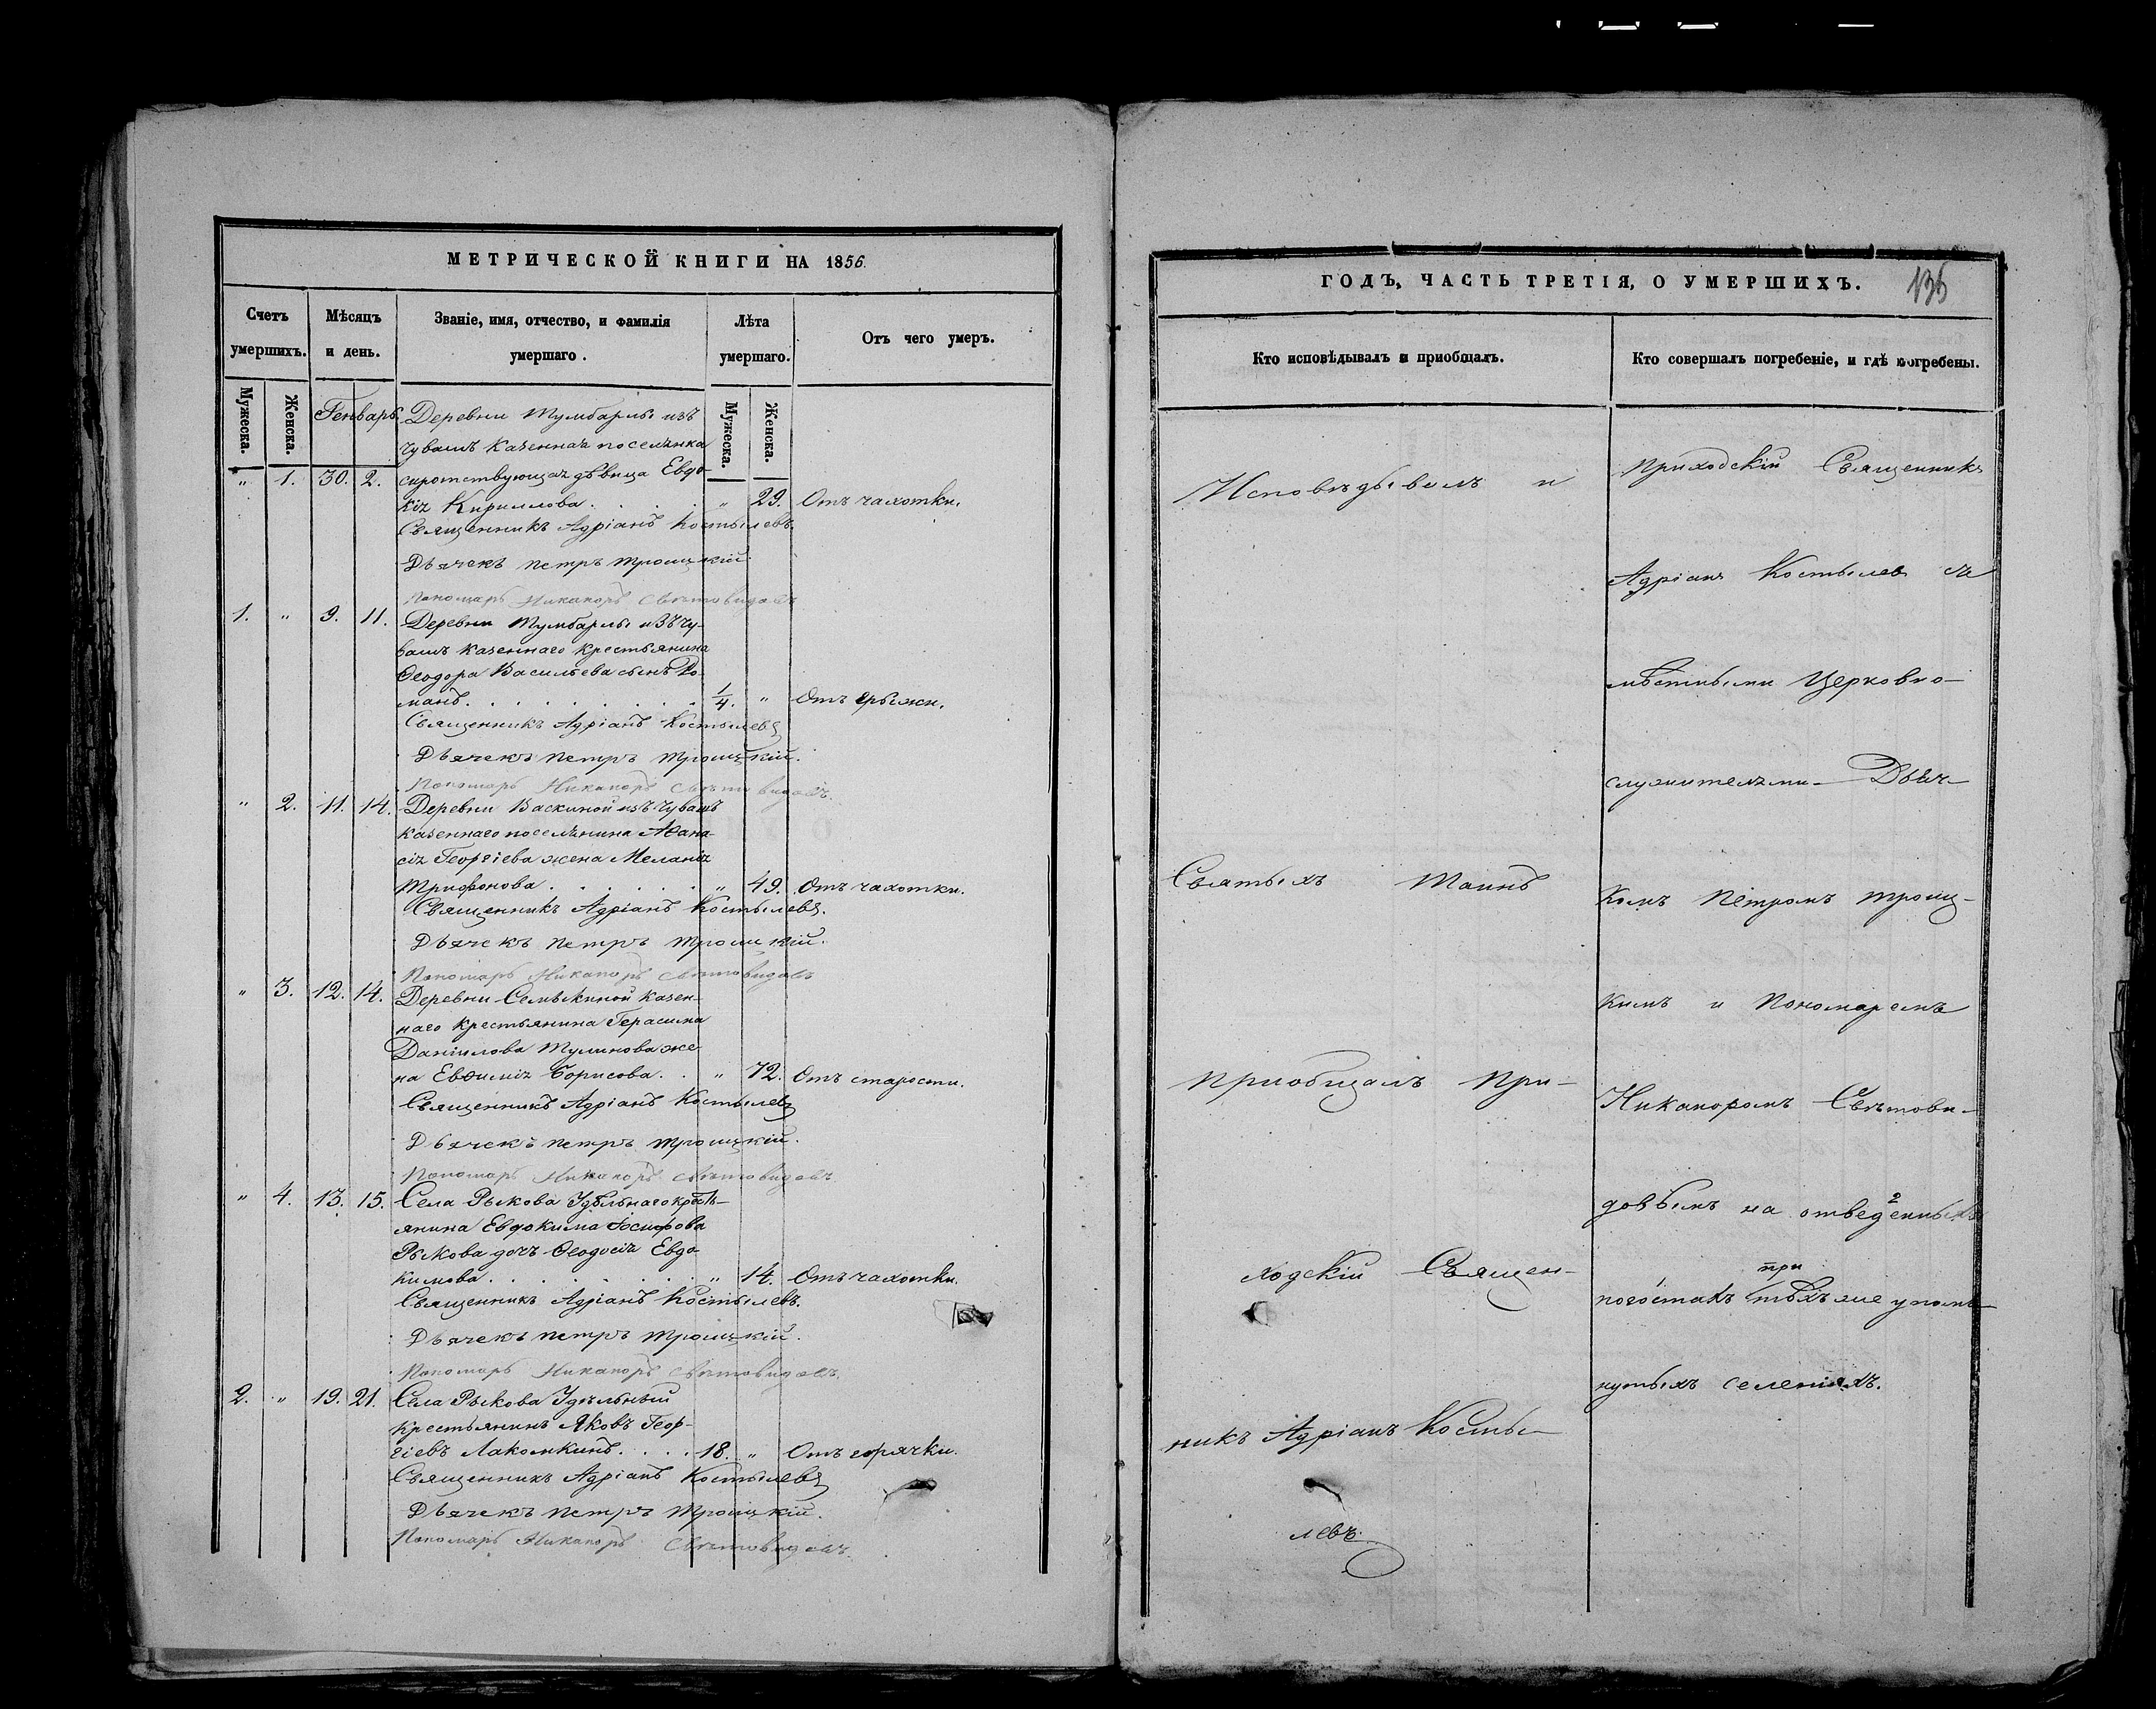 МЕТРИЧЕСКОЙ КНИГИ НА 1856.
Счетъ умершихъ.
Мѣсяцъ и день.
Званіе, имя, отчество, и фамилія умершаго.
Лѣта умершаго.
Отъ чего умеръ.
Мужеска. Женска.
Мужеска. Женска.
Генварь.
Деревни Тумбарлы изъ
чувашъ казенная поселянка
" 1. 30. 2. сиротствующая дѣвица Евдо-
кія Кириллова . . . . " 29. Отъ чахотки.
Священникъ Адріанъ Костылевъ.
Дьячекъ Петръ Троицкій.
Пономарь Никаноръ Свѣтовидовъ
1. " 9. 11. Деревни Тумбарлы изъ чу-
вашъ казеннаго крестьянина
Ѳеодора Васильева сынъ Ро-
манъ . . . . . . . 1/4. " Отъ грыжи.
Священникъ Адріанъ Костылевъ
Дьячекъ Петръ Троицкій.
Пономарь Никаноръ Свѣтовидовъ.
" 2. 11. 14. Деревни Васкиной изъ чувашъ
казеннаго поселянина Аѳана-
сія Георгіева жена Меланія
Трифонова . . . . . " 49. Отъ чахотки.
Священникъ Адріанъ Костылевъ.
Дьячекъ Петръ Троицкій.
Пономарь Никаноръ Свѣтовидовъ
" 3. 12. 14. Деревни Семѣнкиной казен-
наго крестьянина Герасима
Даніилова Тулинова же-
на Евѳимія Борисова . . " 72. Отъ старости.
Священникъ Адріанъ Костылевъ
Дьячекъ Петръ Троицкій.
Пономарь Никаноръ Свѣтовидовъ
" 4. 13. 15. Села Рыкова Удѣльнаго кресть-
янина Евдокима Іосифова
Рыкова дочь Ѳеодосія Евдо-
кимова . . . . . . . " 14. Отъ чахотки.
Священникъ Адріанъ Костылевъ.
Дьячекъ Петръ Троицкій.
Пономарь Никаноръ Свѣтовидовъ.
2. " 19. 21. Села Рыкова Удѣльный
крестьянинъ Яковъ Геор-
гіевъ Лакомкинъ . . . . 18. " Отъ горячки.
Священникъ Адріанъ Костылевъ
Дьячекъ Петръ Троицкій.
Пономарь Никаноръ Свѣтовидовъ.
ГОДЪ, ЧАСТЬ ТРЕТІЯ, О УМЕРШИХЪ.
136
Кто исповѣдывалъ и пріобщалъ.
Исповѣдывалъ и
Святыхъ Таинъ
пріобщалъ При-
ходскій Священ-
никъ Адріанъ Косты-
левъ.
Кто совершалъ погребеніе, и гдѣ погребены.
Приходскій Священникъ
Адріанъ Костылевъ съ
мѣстными Церковно-
служителями Дьяч-
комъ Петромъ Троиц-
кимъ и Пономаремъ
Никаноромъ Свѣтови-
довымъ на отведенныхъ
при
погостахъ тѣхъ же упомя-
нутыхъ селеніяхъ.